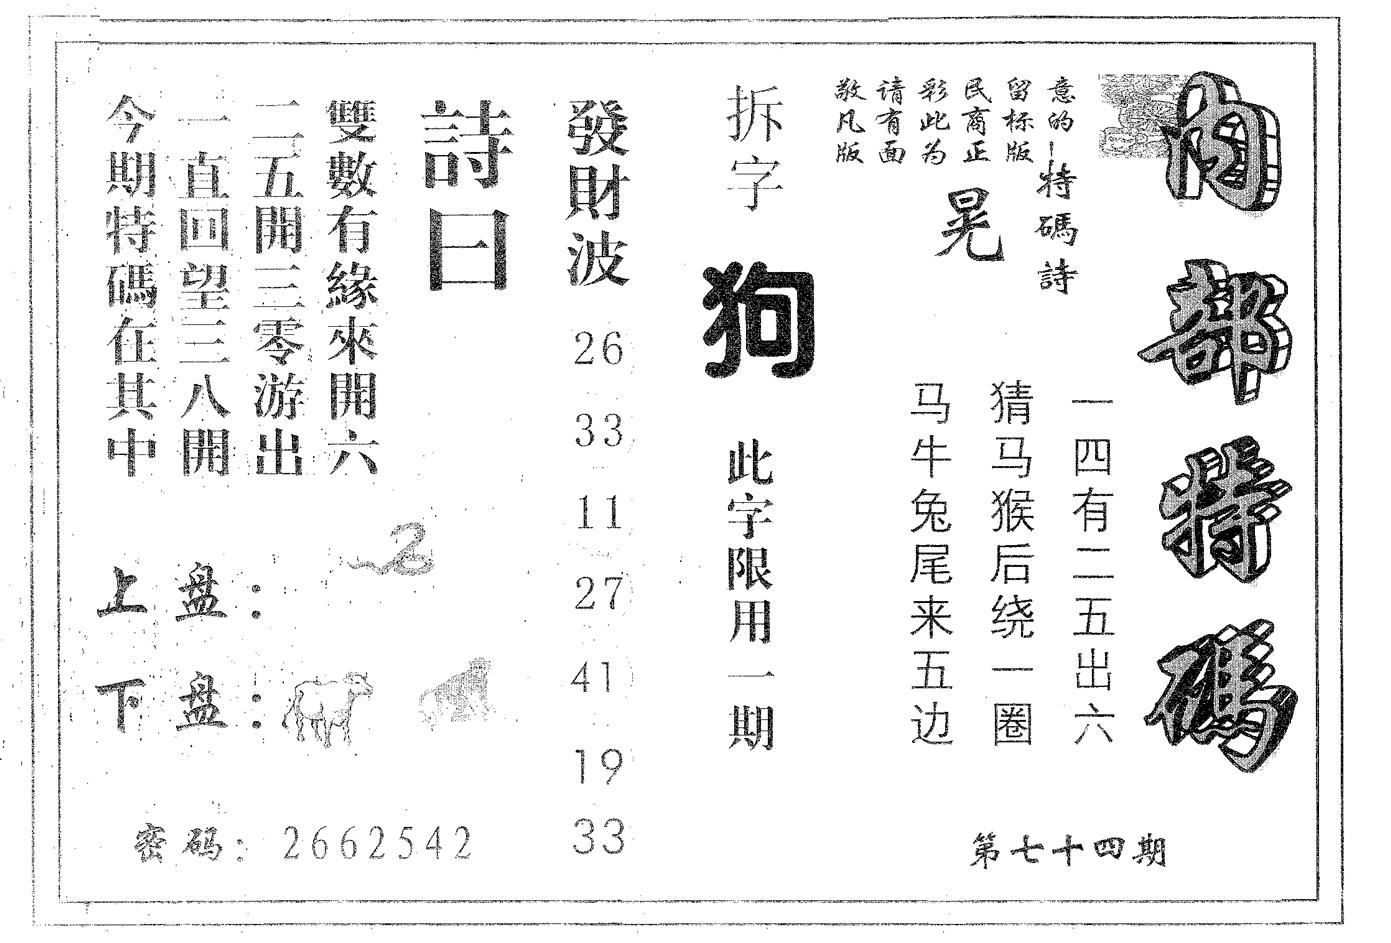 内部特碼
意的
留标版
民商正
彩此为
请有面
敬凡版
特碼詩
晃
一四有二五出六
猜马猴后绕一圈
马牛兔尾来五边
第七十四期
拆字
狗
此字限用一期
發財波
26
33
11
27
41
19
33
詩曰
雙數有緣來開六
二五開三零游出
一直回望三八開
今期特碼在其中
上盘：
下盘：
密码：2662542